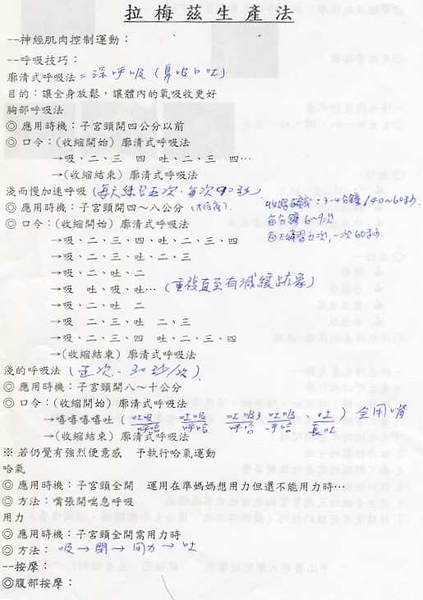 拉梅茲生產法
--神經肌肉控制運動：
--呼吸技巧：
廓清式呼吸法 = 深呼吸 (鼻吸口吐)
目的：讓全身放鬆，讓體內的氧吸收更好
胸部呼吸法
◎應用時機：子宮頸開四公分以前
◎口令：(收縮開始) 廓清式呼吸法
→吸、二、三　四　吐、二、三　四…
→(收縮結束) 廓清式呼吸法
淺而慢加速呼吸 (每天練習五次，每次90秒)
◎應用時機：子宮頸開四～八公分
◎口令：(收縮開始) 廓清式呼吸法
→吸、二、三、四　吐、二、三、四
→吸、二、三　吐、二、三
→吸、二、吐、二
→吸、吐、吸、吐… (重複直至有減緩
→吸、二、吐　二
→吸、二、三　吐　二、三
→吸、二、三、四　吐、二、三、四
→(收縮結束) 廓清式呼吸法
3-4分鐘 / 40~60秒
每分鐘 6~9次
每天練習五次，一次60秒
淺的呼吸法 (
◎應用時機：子宮頸開八～十公分
◎口令：(收縮開始) 廓清式呼吸法
→嘻嘻嘻嘻吐 (吐吸　吐吸　吐吸　吐吸、吐) 全用嘴
長吐
→(收縮結束) 廓清式呼吸法
※ 若仍覺有強烈便意感　予執行哈氣運動
哈氣
◎應用時機：子宮頸全開　運用在準媽媽想用力但還不能用力時…
◎方法：嘴張開喘息呼吸
用力
◎應用時機：子宮頸全開需用力時
◎方法：吸→閉→用力→吐
--按摩：
◎腹部按摩：